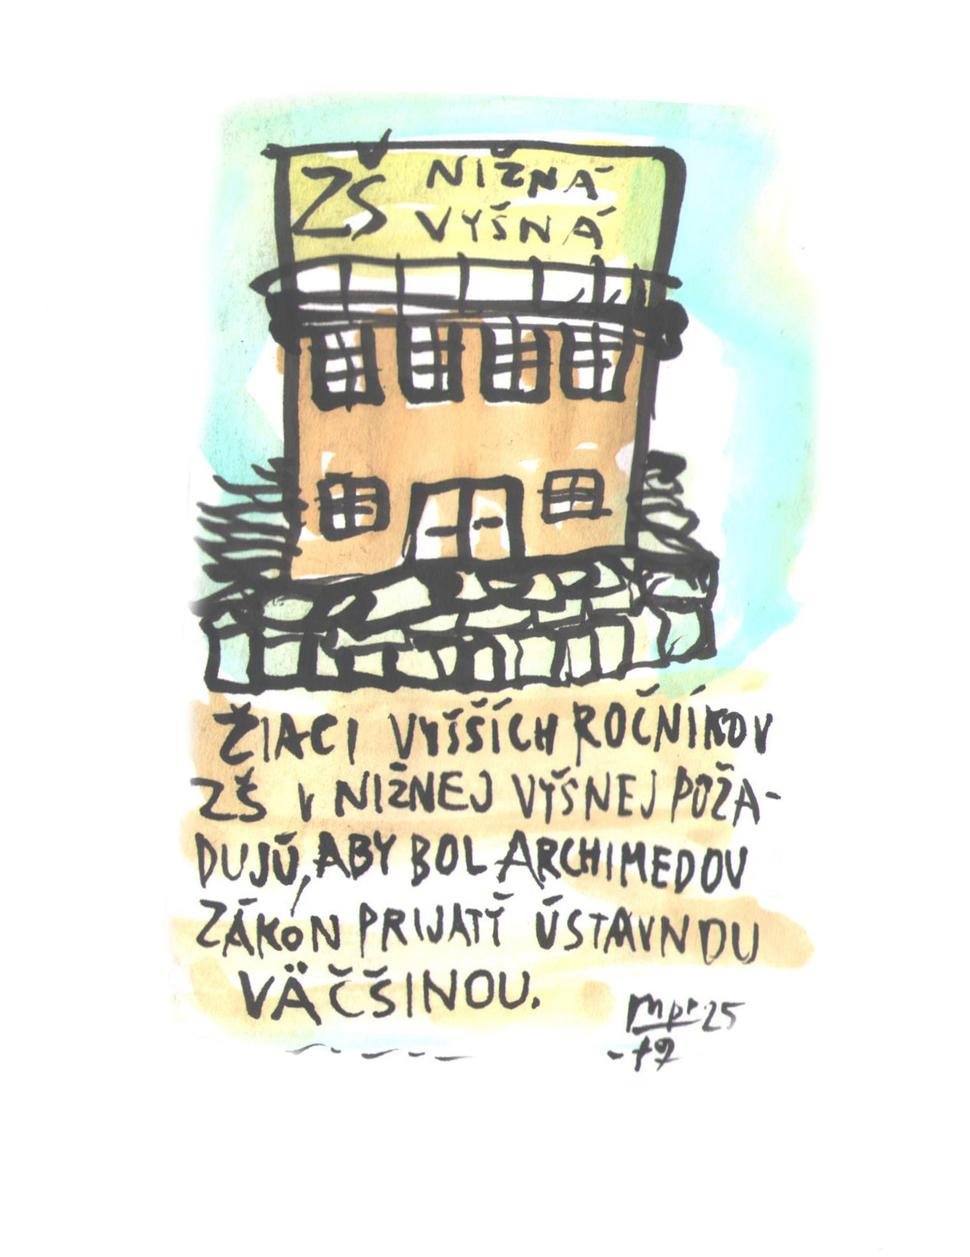 ZŠ NIŽNÁ
VYŠNÁ
ŽIACI VYŠŠÍCH ROČNÍKOV
ZŠ V NIŽNEJ VYŠNEJ POŽA-
DUJÚ, ABY BOL ARCHIMEDOV
ZÁKON PRIJATÝ ÚSTAVNOU
VÄČŠINOU.
25